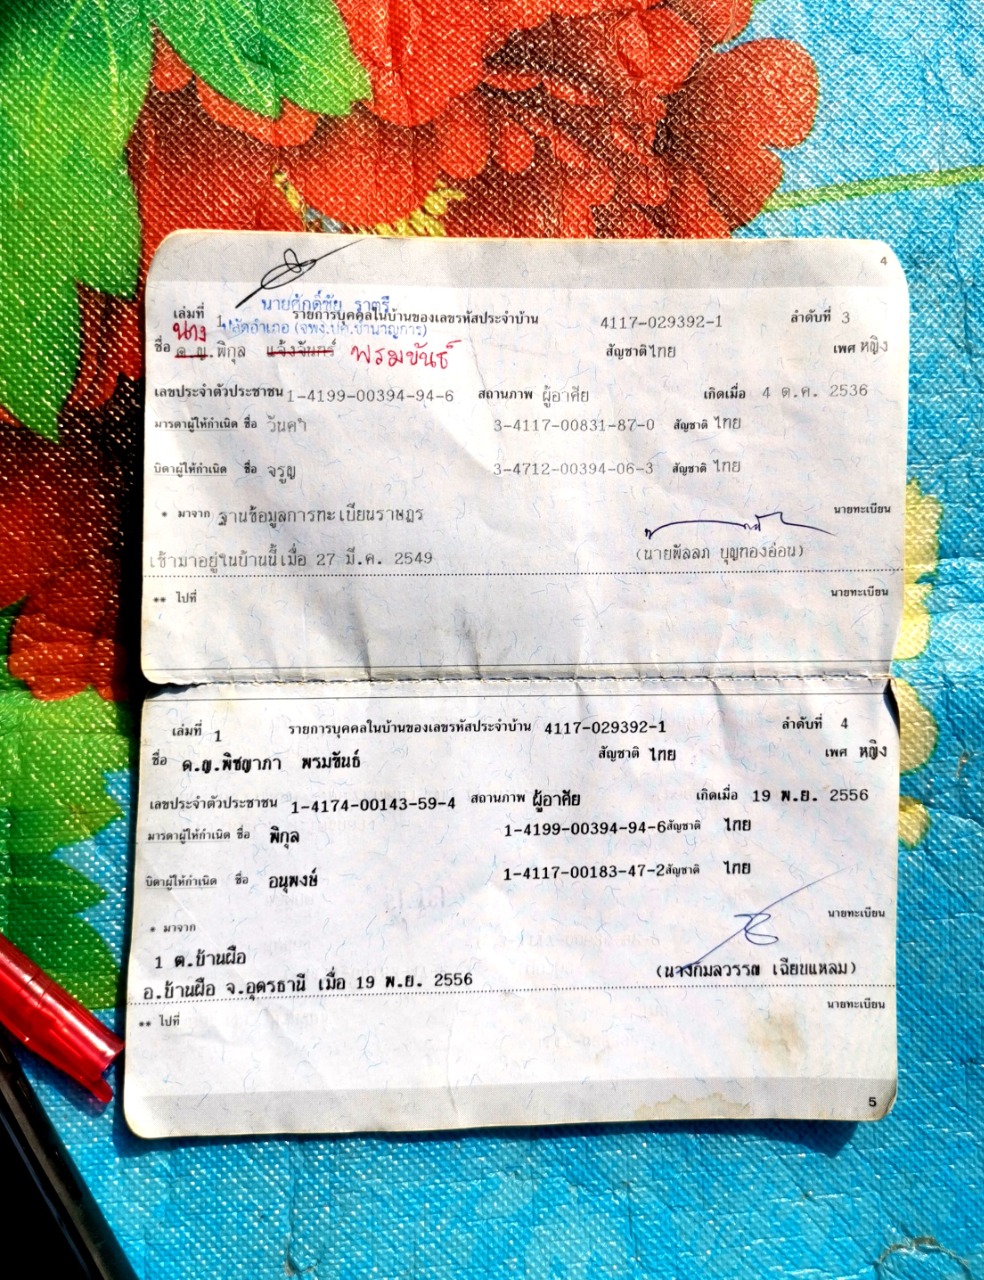 4
นายศักดิ์ชัย ราตรี
เล่มที่ 1 รายการบุคคลในบ้านของเลขรหัสประจำบ้าน 4117-029392-1 ลำดับที่ 3
นาง ปลัดอำเภอ (จพง.ปค.ชำนาญการ)
ชื่อ ด.ญ.พิกุล แจ้งจันทร์ พรมขันธ์ สัญชาติ ไทย เพศ หญิง
เลขประจำตัวประชาชน 1-4199-00394-94-6 สถานภาพ ผู้อาศัย เกิดเมื่อ 4 ต.ค. 2536
มารดาผู้ให้กำเนิด ชื่อ 3-4117-00831-87-0 สัญชาติ ไทย
บิดาผู้ให้กำเนิด ชื่อ จรูญ 3-4712-00394-06-3 สัญชาติ ไทย
* มาจาก ฐานข้อมูลการทะเบียนราษฎร นายทะเบียน
เข้ามาอยู่ในบ้านนี้เมื่อ 27 มี.ค. 2549 (นายพัลลภ บุญทองอ่อน)
** ไปที่ นายทะเบียน
เล่มที่ 1 รายการบุคคลในบ้านของเลขรหัสประจำบ้าน 4117-029392-1 ลำดับที่ 4
ชื่อ ด.ญ.พิชญาภา พรมขันธ์ สัญชาติ ไทย เพศ หญิง
เลขประจำตัวประชาชน 1-4174-00143-59-4 สถานภาพ ผู้อาศัย เกิดเมื่อ 19 พ.ย. 2556
มารดาผู้ให้กำเนิด ชื่อ พิกุล 1-4199-00394-94-6 สัญชาติ ไทย
บิดาผู้ให้กำเนิด ชื่อ อนุพงษ์ 1-4117-00183-47-2 สัญชาติ ไทย
* มาจาก นายทะเบียน
1 ต.บ้านผือ
อ.บ้านผือ จ.อุดรธานี เมื่อ 19 พ.ย. 2556 (นางกมลวรรณ เฉียบแหลม)
** ไปที่ นายทะเบียน
5